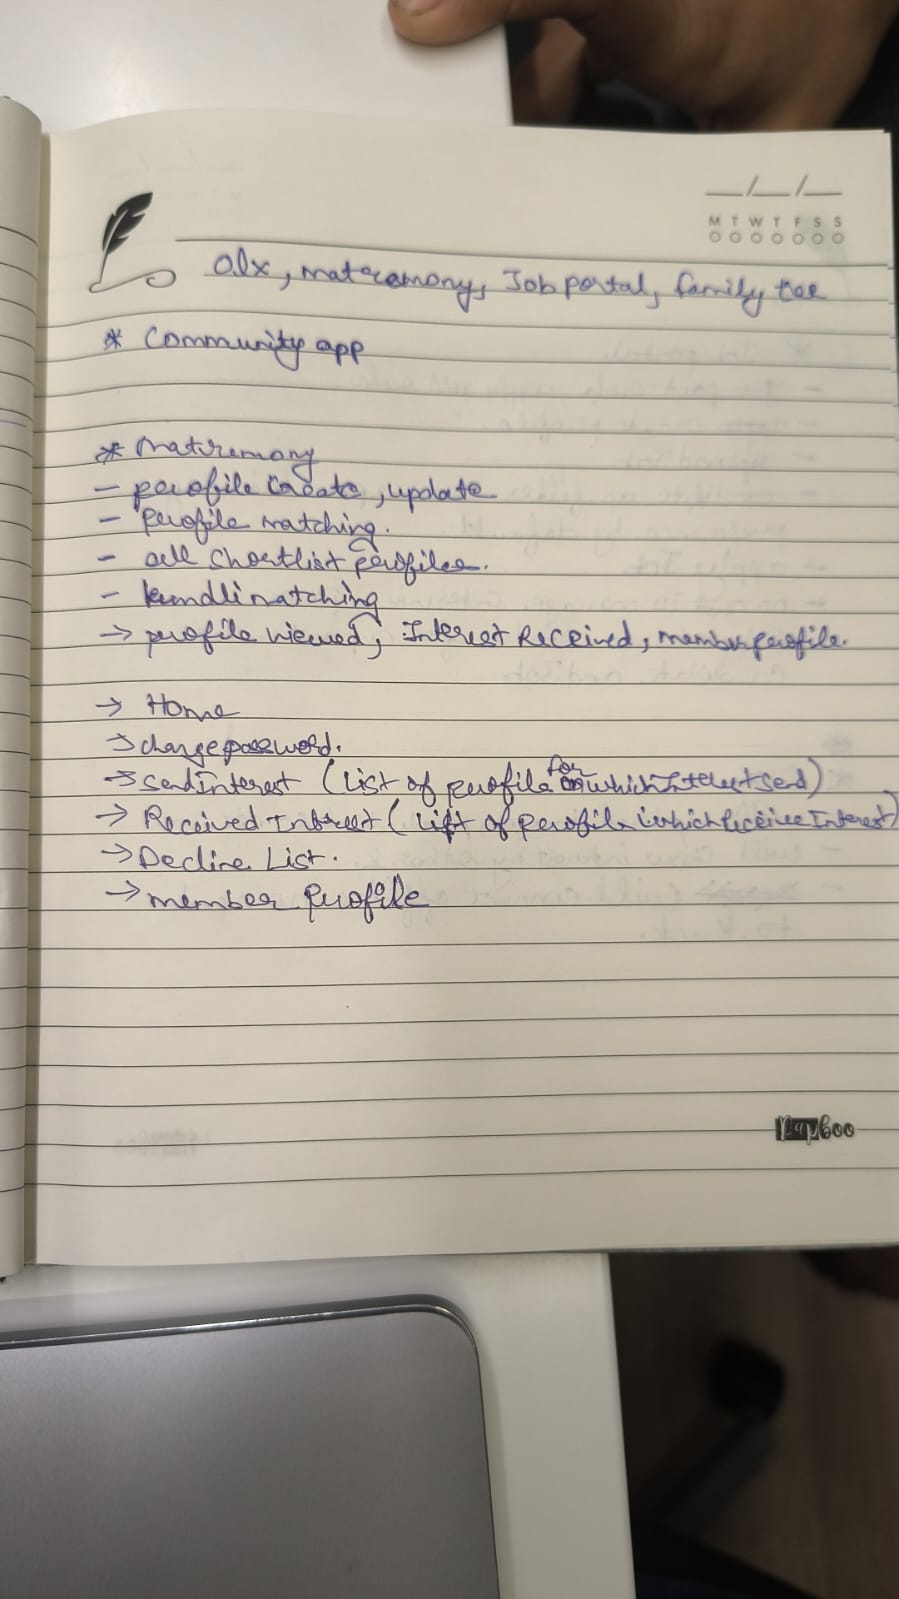 M T W T F S S
olx, matrimony, Job portal, family tree
* Community app
* Matrimony
- profile Create, update
- Profile matching.
- all Shortlist profiles.
- kundli matching
→ profile viewed, Interest Received, member profile.
→ Home
→ change password.
→ Send Interest (List of profile for which Interest Send)
→ Received Interest (List of profile which Receive Interest)
→ Decline List.
→ member Profile